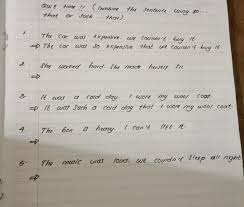 Quiz time !! (Combine the sentence using so...
that or such ... that).
1. The car was expensive. we couldn't buy it.
⇒ The car was so expensive that we couldn't buy it.
2. She worked hard. She made herself ill.
⇒
3. It was a cold day. I wore my wool coat.
⇒ It was such a cold day that I wore my wool coat.
4. The box is heavy. I can't lift it.
⇒
5. The music was loud. we couldn't sleep all night
⇒